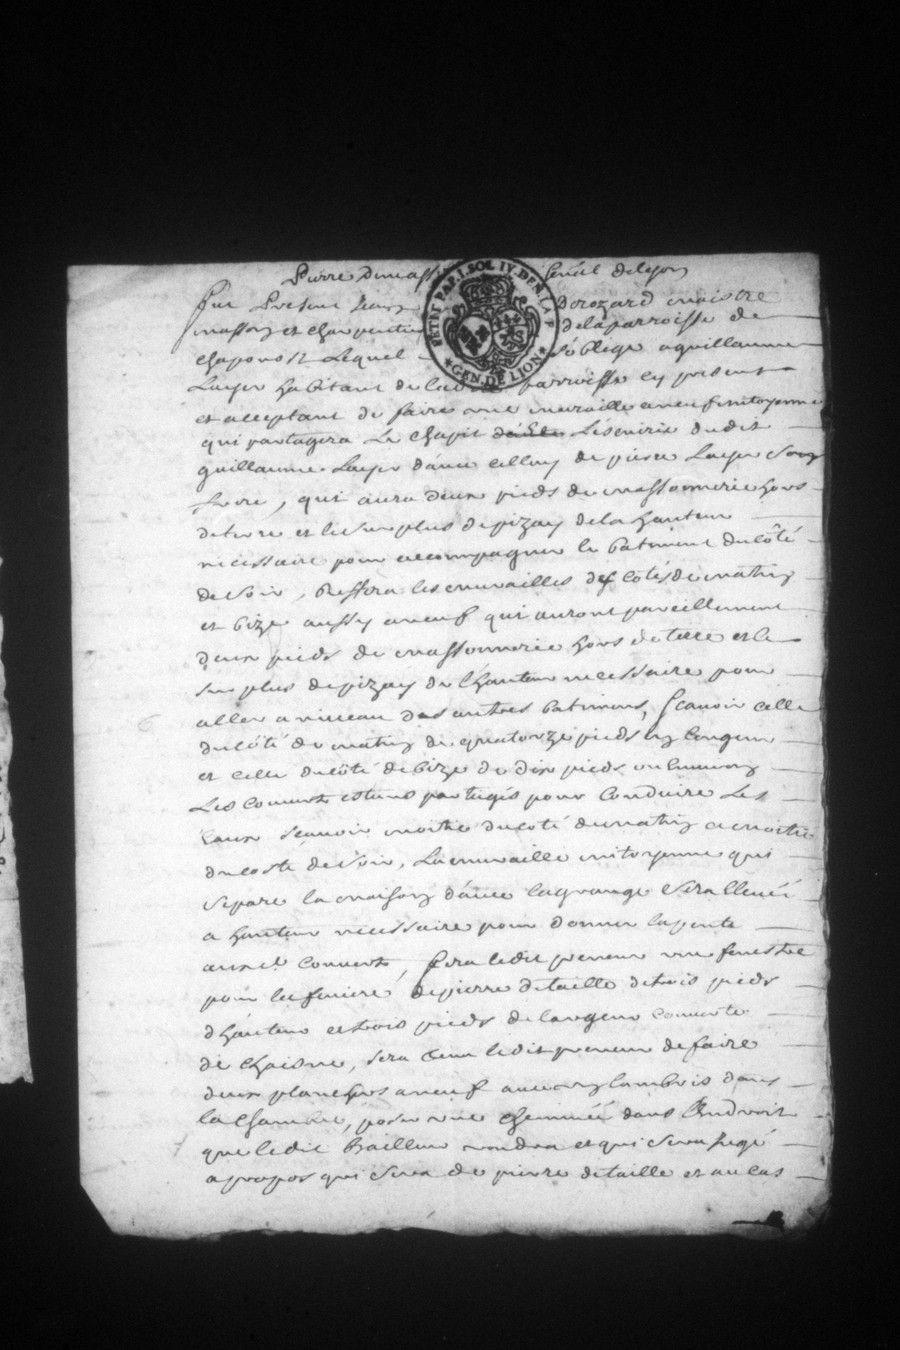 Pierre Dumas Genèal delyon
PETIT PAP. 1. SOL. IV. DEN. LA F
GEN. DE LION
fut present Jean Borozard maistre
masson et charpentier delaparroisse de
chaponost Lequel s'oblige aguillaume
Layer habitant de lad parroisse cy present
et acceptant de faire une muraille aneuf mitoyenne
qui partagera Le chapit L'escuirie dudit
guillaume Layer d'avec celluy de pierre Layer son
frere, qui aura deux pieds de massonnerie hors
deterre et lesurplus depizay delahauteur
necessaire pour accompagner le batiment ducôté
desoir, Reffera les murailles des cotés de matin
et bize aussy aneuf qui auront pareillement
deux pieds de massonnerie hors de terre et le
surplus depizay de l'hauteur necessaire pour
aller aniveau des autres batimens, scavoir celle
ducôté de matin de quatorze pieds en longueur
et celle ducôté debize de dix pieds ou environ
Les couverts estans partagés pour conduire Les
Eaux scavoir moitié ducoté dematin et moitié
ducosté desoir, La muraille mitoyenne qui
separe la maison d'avec lagrange sera Elevée
a hauteur necessaire pour donner lapente
auxd. couverts, fera ledit preneur une fenestre
pour la depierre detaille detrois pieds
dhauteur et trois pieds delargeur couverte
de Chaisne, sera tenu ledit preneur defaire
deux planchers aneuf avec un lambris dans
la Chambre, poser une Cheminée dans l'Endroit
que ledit Bailleur voudra et qui sera jugé
apropos qui sera de pierre detaille et au cas